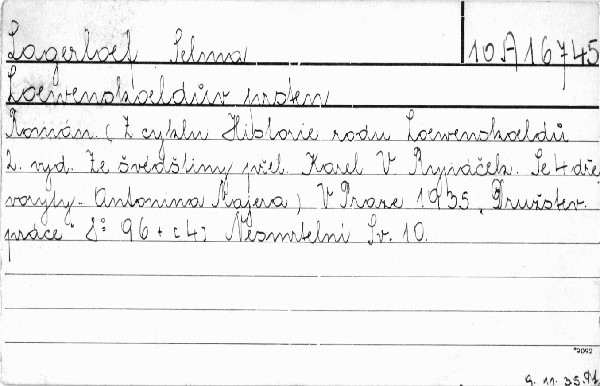 Lagerloef Selma 10 A 16745
Loewenskoeldův prsten
Román. (Z cyklu Historie rodu Loewenskoeldů
2. vyd. Ze švédštiny přel. Karel V. Rypáček. Se 4 dře-
voryty. Antonína Majera) V Praze 1935. Družstev.
práce 8° 96 + [4] Nesmrtelní Sv. 10.
*2092
9. 11. 35.